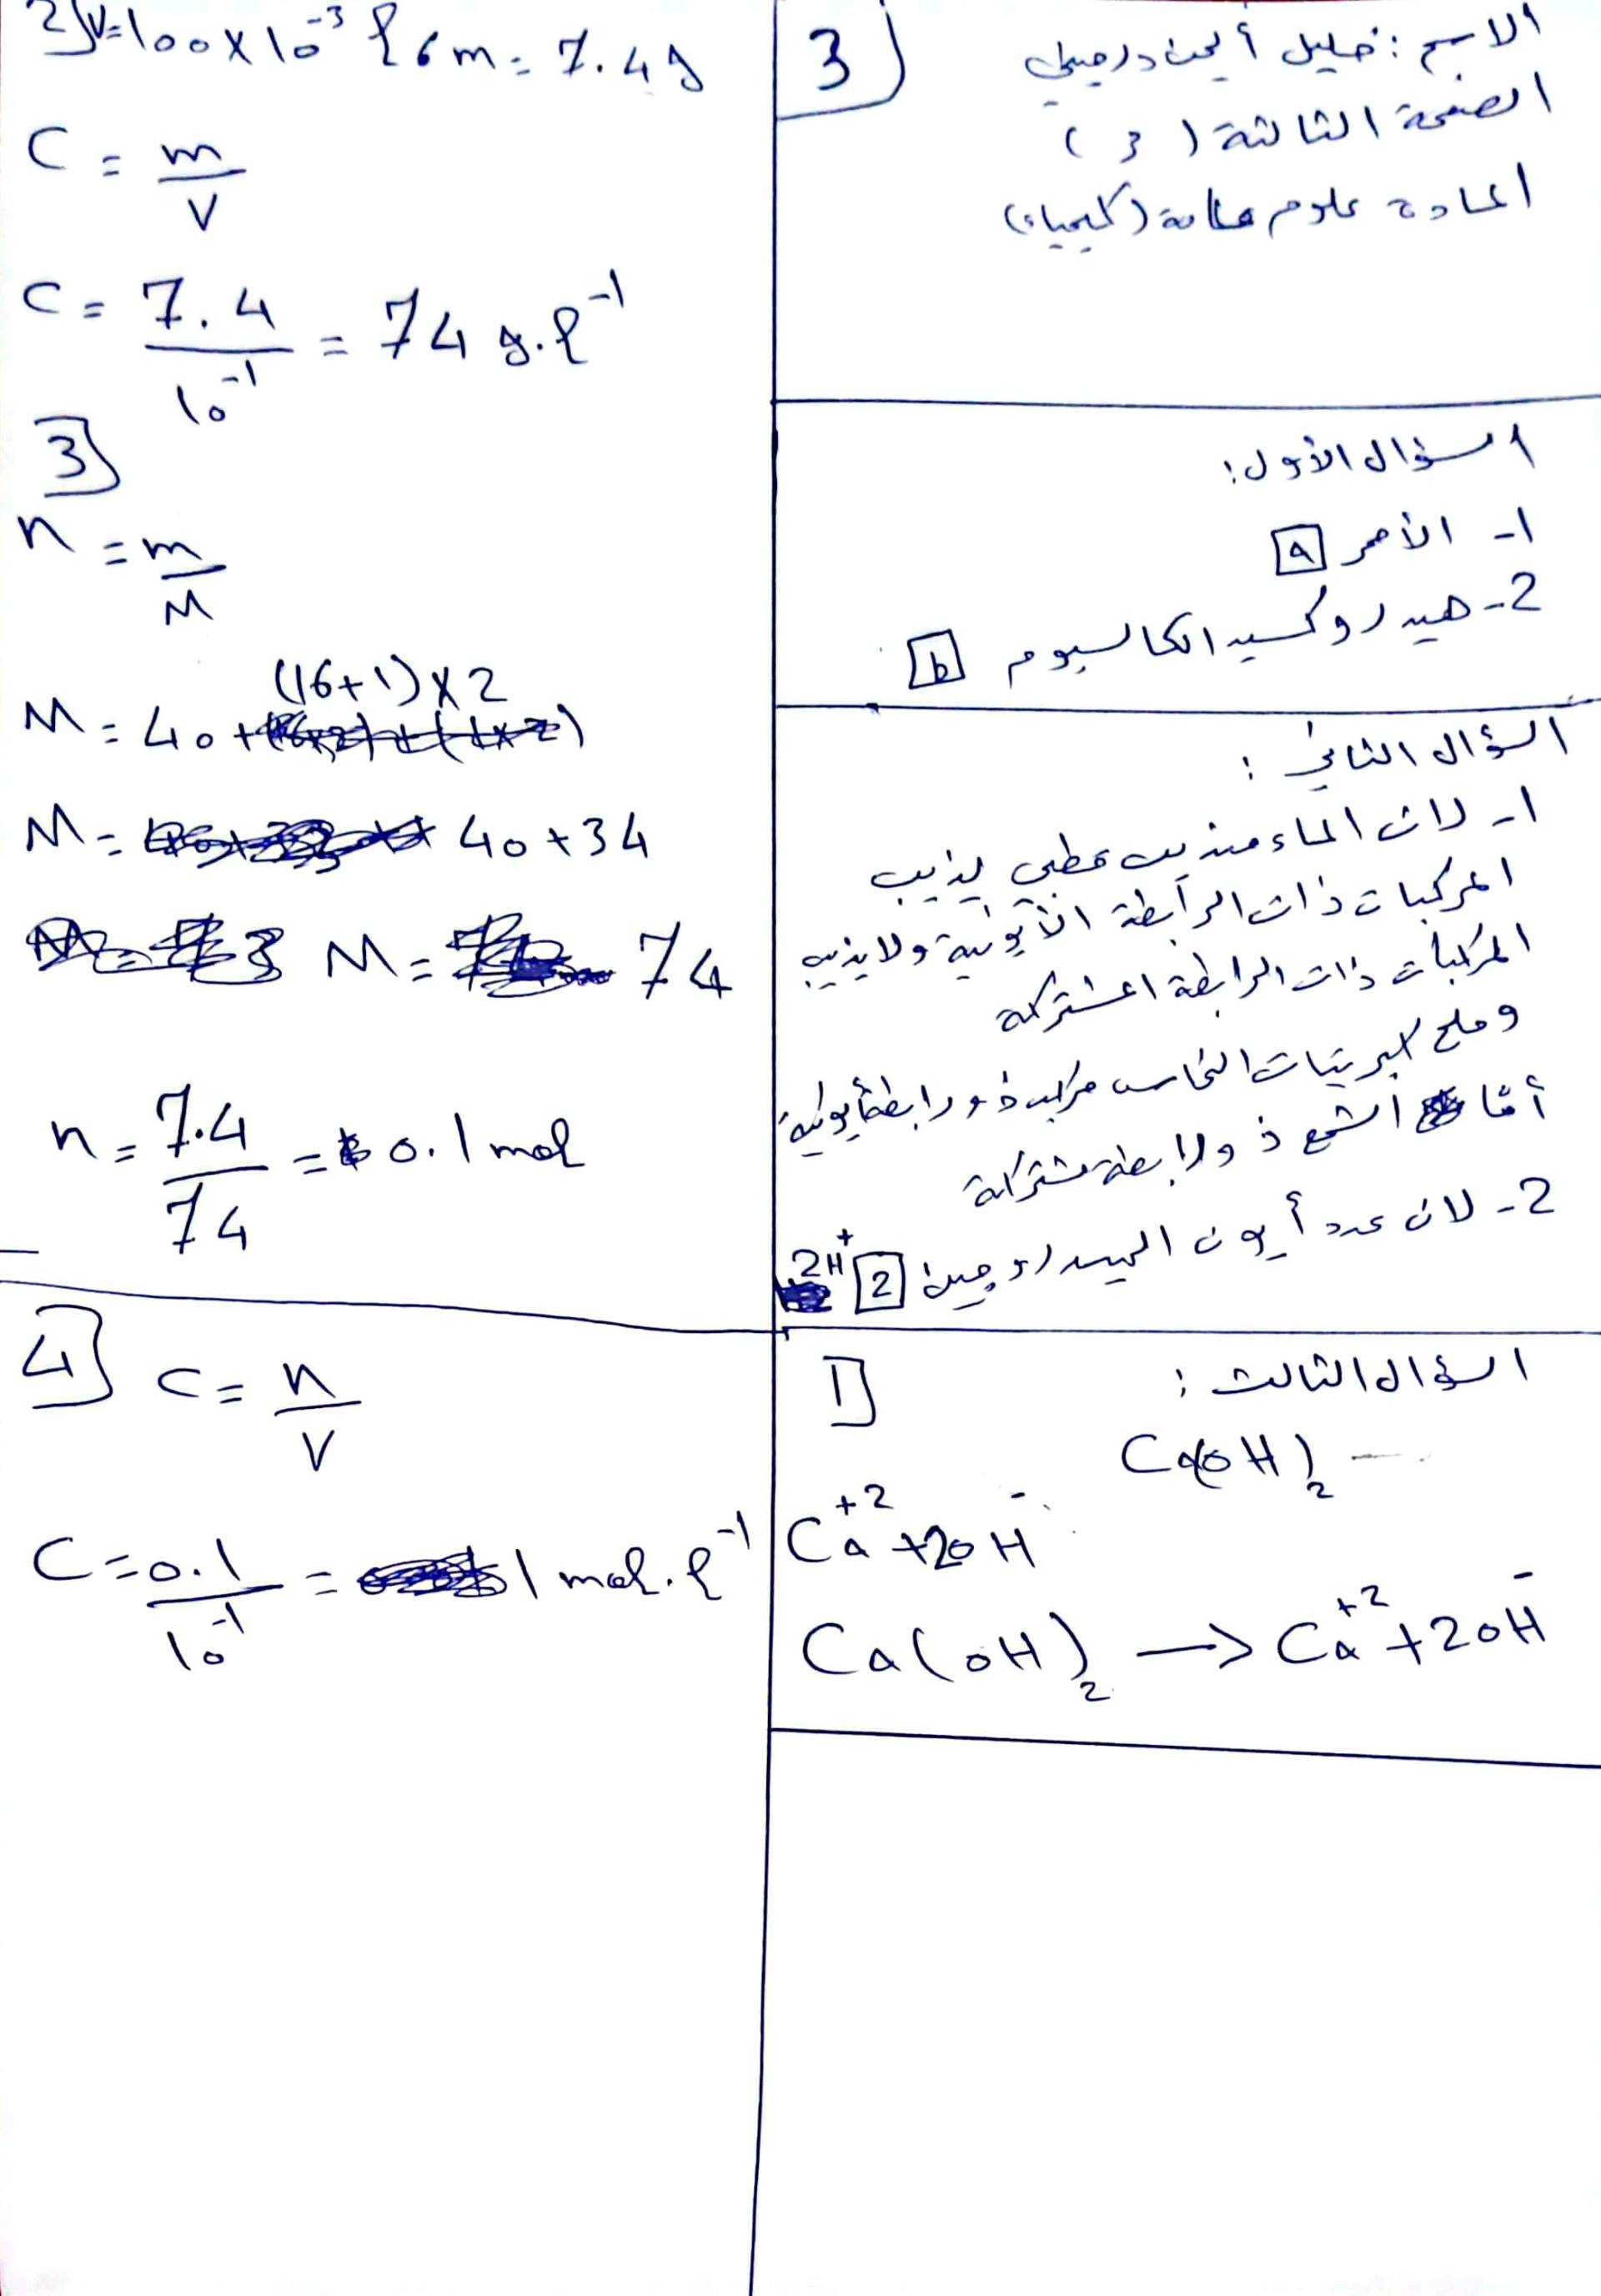 3
الاسم: خليل أيمن درجيلي
الصفحة الثالثة (3)
المادة علوم عامة (كيمياء)
السؤال الأول:
1- الأحمر a
2- هيدروكسيد الكالسيوم b
السؤال الثاني:
1- لان الماء مذيب قطبي يذيب
المركبات ذات الرابطة الأيونية ولا يذيب
المركبات ذات الرابطة المشتركة
وملح كبريتات النحاس مركب ذو رابطة أيونية
أمّا الشمع ذو رابطة مشتركة
2- لان عدد أيون الهيدروجين 2 2H⁺
السؤال الثالث:
1
Ca(OH)₂
Ca⁺² + 2OH⁻
Ca(OH)₂ → Ca⁺² + 2OH⁻
2 V=100×10⁻³ ℓ 6 m=7.4g
C = m/V
C = 7.4/10⁻¹ = 74 g.ℓ⁻¹
3
n = m/M
M = 40 + (16+1)×2
M = 40+34
M = 74
n = 7.4/74 = 0.1 mol
4 C = n/V
C = 0.1/10⁻¹ = 1 mol.ℓ⁻¹